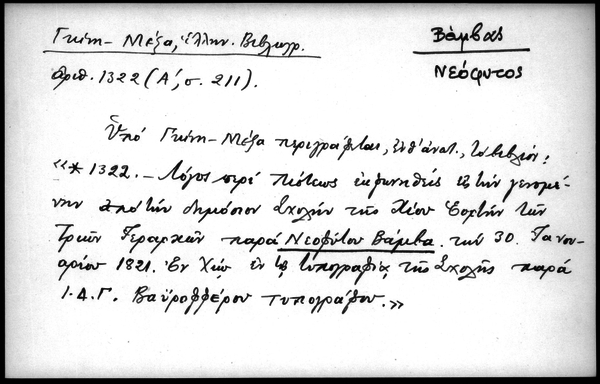 Γκίνη - Μέξα, Ἑλλην. Βιβλιογρ.
ἀριθ. 1322 (Α΄, σ. 211).
Βάμβας
Νεόφυτος
Ὑπό Γκίνη - Μέξα περιγράφεται, ἐνθ' ἀνωτ., τό βιβλίον:
«*1322. - Λόγος περί πίστεως ἐκφωνηθείς εἰς τήν γενομέ-
νην ἀπό τήν δημόσιον Σχολήν τῆς Χίου ἑορτήν τῶν
Τριῶν Ἱεραρχῶν παρά Νεοφύτου Βάμβα τῇ 30. Ἰανου-
αρίου 1821. Ἐν Χίῳ ἐν τῇ τυπογραφίᾳ τῆς Σχολῆς παρά
Ι.Δ.Γ. Βαϋροφφέρου τυπογράφου.»